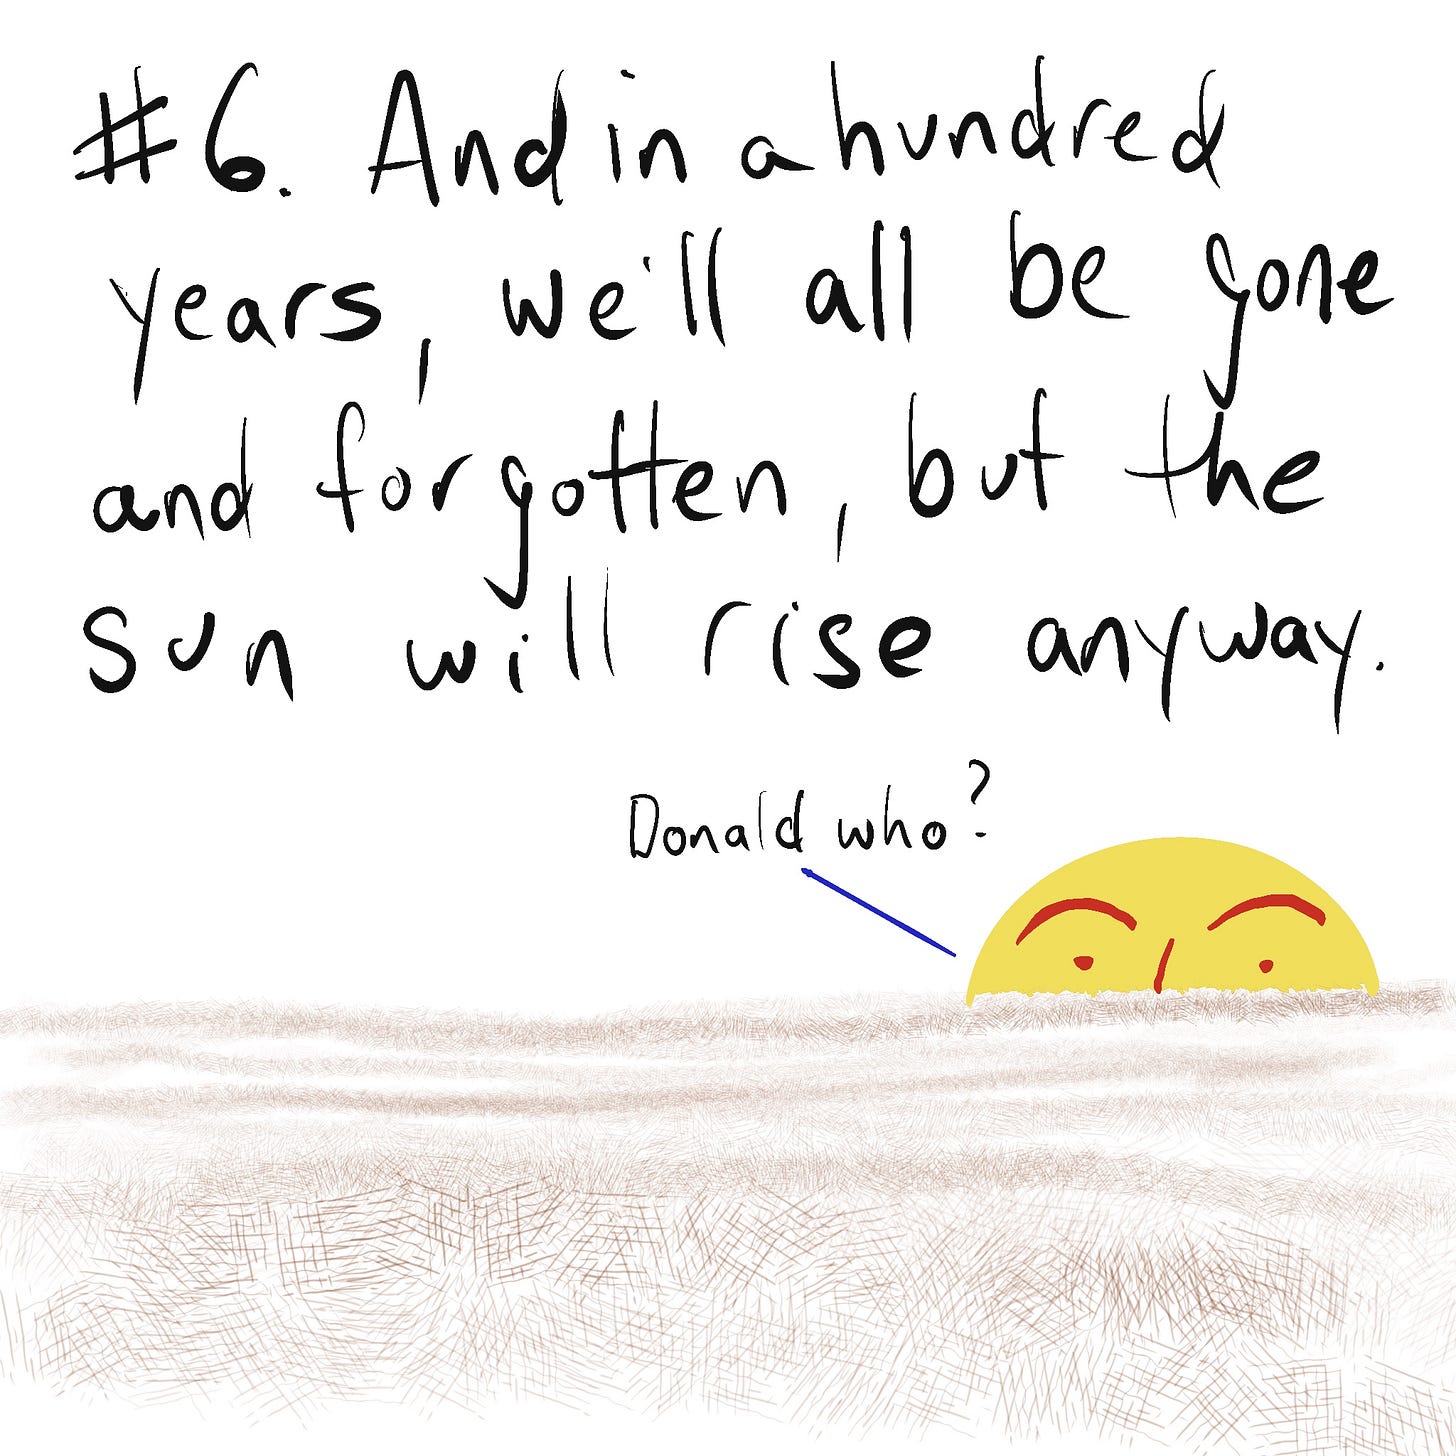 #6. And in a hundred
years, we'll all be gone
and forgotten, but the
sun will rise anyway.
Donald who?